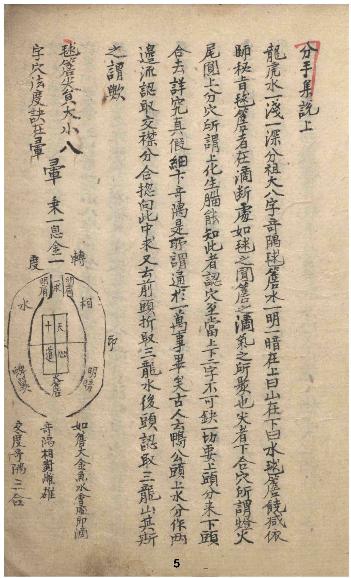 分手集說上
龍虎水一淺一深分祖大八字奇隅毬簷水一明一暗在上曰山在下曰水毬簷饒減依
師秘肯毬簷者在滴斷處如毬之圓簷之滴氣之所聚也尖者下合穴所謂燈火
尾圓上分穴所謂上化生腦能知此者認穴至當上下二字不可缺切要上頭分來下頭
合去詳究真假細卞奇隅是所謂通於一萬事畢矣古人云鴨公頭上水分作兩
邊流認取交襟分合揔向此中求又去前頭折取三龍水後頭認取三龍山其斯
之謂歟
毬簷步貧大小八
字穴法度訣在暈
暈
乘一息金一
轉
度
相
印
水
天
心
十
道
明暗
如簷大金魚水會脣即滴
奇隅相對雌雄
交度奇隅二合
5